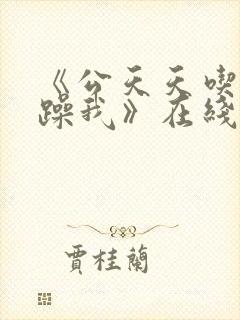 《公天天喫
躁我》在綫
賈桂蘭